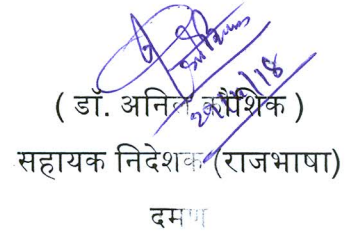 ( डॉ. अनिल कौशिक )
सहायक निदेशक (राजभाषा)
दमण